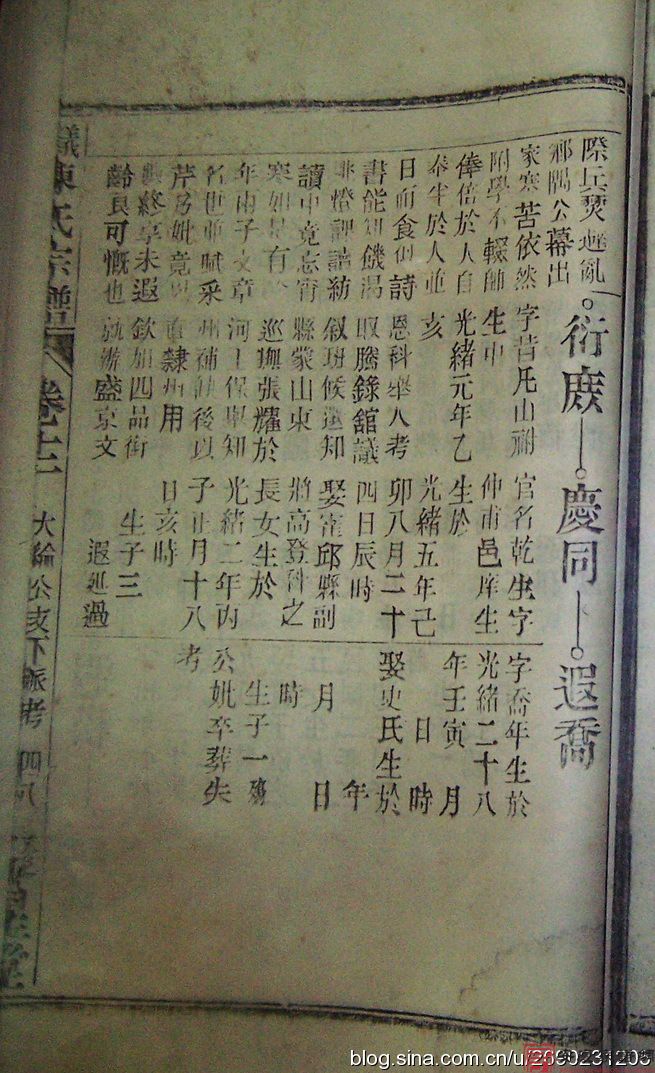 際兵燹避亂
鄉隅公幕出
家寒苦依然
附學不輟師
俸倍於人自
奉半於人並
日而食但詩
書能知饑渴
讀中竟忘宵
寒如是有
年由子文章
名世並賦采
芹乃妣竟
終享未遐
齡良可慨也
衍庶
字昔凡山
生中
光緒元年乙
亥
恩科舉人考
取謄錄舘議
敘班候選知
縣蒙山東
巡撫張耀於
河工保舉知
州補缺後以
直隸州用
欽加四品銜
就辦盛京文
慶同
官名乾生字
仲甫邑庠生
生於
光緒五年己
卯八月二十
四日辰時
娶甯邱縣副
將高登科之
長女生於
光緒二年丙
子正月十八
日亥時
生子三
遐延過
遐喬
字喬年生於
光緒二十八
年壬寅 月
日 時
娶史氏生於
年
月 日
時
生子一殤
公妣卒葬失
考
陳氏宗譜
卷十二
大綸公支下派考
blog.sina.com.cn/u/2690231203